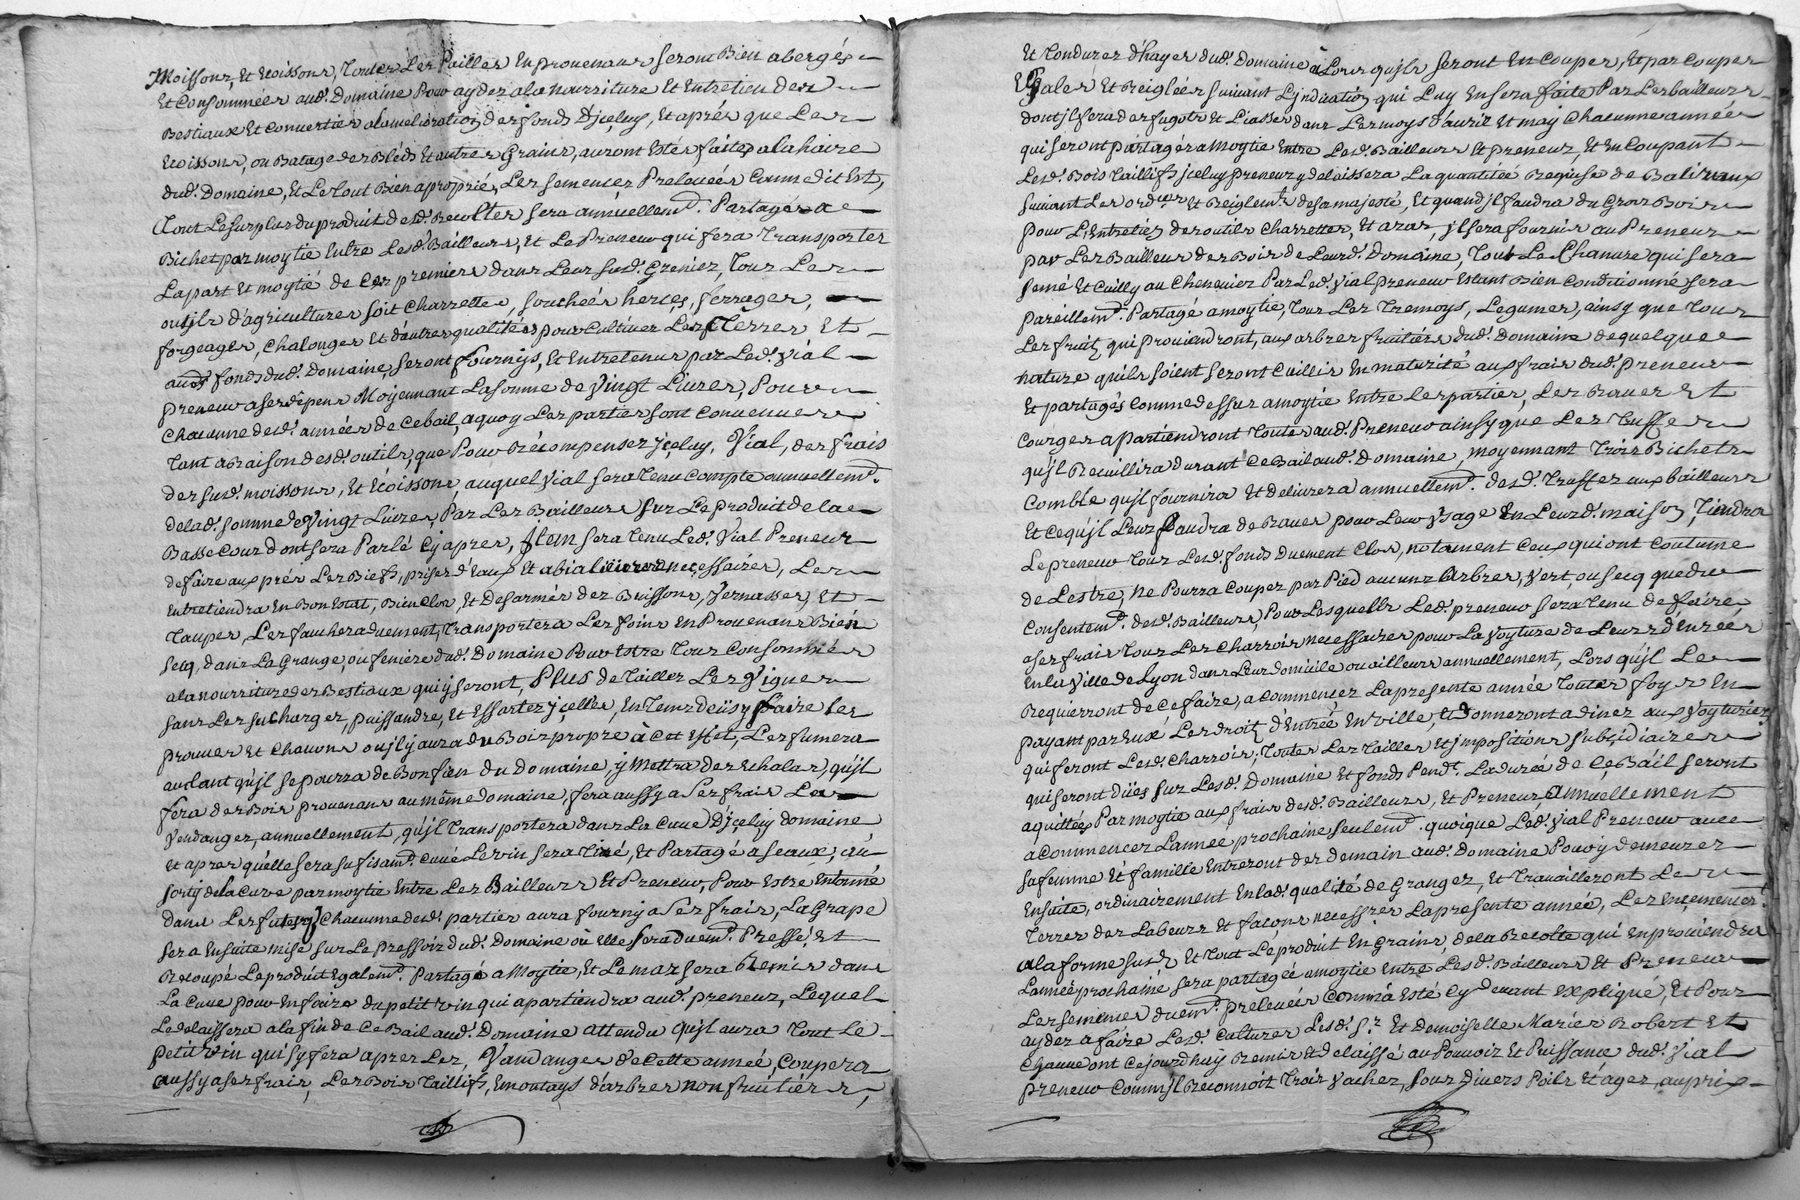 Moissons, Et Ecoissons, Toutes Les Pailles En provenans seront Bien abergés
Et Consommées aud. Domaine Pour ayder a la nourriture Et Entretien des
Bestiaux Et Converties a lamelioration des fonds d'jceluy, Et aprés que Les
Ecoissons, ou Batage des Bleds Et autres Grains, auront Estés faites a la haire
dud. Domaine, Et Le tout Bien aproprié, Les semences Prelevées Comme dit Est,
Tout Le surplus du produit desd. Recoltes sera annuellemt. Partagés a
Bichet par moytie Entre Lesd. Bailleurs, Et Le Preneur qui fera Transporter
La part Et moytié de Ces premiers dans Leur susd. Grenier, Tous Les
outils d'agricultures soit Charrettes, souchées herces, ferrages,
forgeages, Chalonges Et d'autres qualités pour Cultiver Les Terres Et
auds fonds dud. Domaine, seront fournijs, Et Entretenus par Led. Vial
preneur a ses dépens Moyennant La somme de Vingt Livres, Pour
Chacunne desd. années de Ce bail, a quoy Les parties sont Convenues
tant a Raison desd. outils, que Pour Récompenser jceluy, Vial, des frais
des susd. moissons, Et Ecoissons, auquel Vial sera tenu Compte annuellemt.
de lad. somme de Vingt Livres, Par Les Bailleurs sur Le produit de la
Basse Cour dont sera Parlé Cy apres, Jtem sera tenu Led. Vial Preneur
de faire aux prés Les Biefs, prises d'Eaux Et abialieres necessaires, Les
Entretiendra En Bon Estat, Bien Clos, Et Desarmés des Buissons, Vernasses, Et
Taupes, Les fauchera duement, Transportera Les foins En Provenans Bien
secq, dans La Grange, ou feniere dud. Domaine Pour Estre tous Consommés
a la nourriture des Bestiaux qui y seront, Plus de Tailler Les Vignes
sans Les surcharger, puissandre, Et Essarter jcelles, En Tems deü, y faire les
prouves Et Chavons ou jl y aura du Bois propre à Cet Effet, Les fumera
autant qu'jl se pourra de Bon fien du Domaine, y Mettra des Echalas, qu'jl
fera des Bois provenans au même domaine, fera aussy a Ses frais La
Vendanges, annuellement, qu'jl transportera dans La Cuve D'jceluy domaine
Et apres qu'elle sera sufisamt. Cuvé Le vin sera Tiré, Et Partagé a seaux, au
sortij de la Cuve par moytie Entre Les Bailleurs Et Preneur, Pour Estre Entonné
dans Les futes q Chacunne desd. parties aura fourny a Ses frais, La Grape
sera Ensuite mise sur Le Pressoir dud. Domaine où Elle sera duemt. Pressé, Et
Recoupé Le produit Egalemt. Partagé a Moytie, Et Le mar sera Remis dans
La Cuve pour En faire du petit vin qui apartiendra aud. preneur, Lequel
Le delaissera a la fin de Ce Bail aud. Domaine attendu qu'jl aura Tout Le
petit vin qui sy fera apres Les Vandanges de Cette année, Coupera
aussy a ses frais, Les Bois Taillifs, Emoutays d'arbres non fruitiers,
Et Tondures d'hayes dud. Domaine à Lors qu'jls seront En Coupes, Et par Coupes
Egales Et Reiglées suivant L'jndication qui Luy En sera faite Par Les bailleurs
dont jl fera des fagots Et Liasses dans Les moys d'avril Et may Chacunne année
qui seront partagés a moytie Entre Lesd. Bailleurs Et preneur, Et En Coupant
Lesd. Bois Taillifs jceluy preneur y delaissera La quantitée Requise de Baliveaux
suivant Les ordces Et Reiglemts. de sa majesté, Et quand jl faudra du Gros Bois
pour L'Entretien des outils Charrettes, Et aras, jl sera fournis au Preneur
par Les Bailleurs des Bois de Leurd. Domaine, Tout Le Chanvre qui sera
semé Et Cuilly au Chenevier Par Led. Vial preneur Estant Bien Conditionné sera
Pareillemt. Partagé a moytie, Tous Les Tremoys, Legumes, ainsy que Tous
Les fruits qui proviendront, aux arbres fruitiers dud. Domaine de quelque
nature qu'ils soient seront Cuillis En maturité aux frais dud. preneur
Et partagés Comme dessus a moytie Entre les parties, Les Raves Et
Courges apartiendront Toutes aud. Preneur ainsy que Les Truffes
qu'jl Recuillira durant Ce Bail aud. Domaine, moyennant Trois Bichets
Comble qu'jl fournira Et delivrera annuellemt. desd. Truffes aux bailleurs
Et Ce qu'jl Leurs faudra de Raves pour Leur Vsage En Leursd. maison, Tiendra
Le preneur Tous Lesd. fonds duement Clos, notament Ceux qui ont Coutume
de L'estre, Ne Pourra Couper par Pied aucuns Arbres, Vert, ou secq que du
Consentemt. desd. Bailleurs, Pour Lesquells Led. preneur sera Tenu de faire,
a ses frais Tous Les Charrois necessaires pour La Voyture de Leurs denrées
En La Ville de Lyon dans Leur domicile ou ailleurs annuellement, Lors qu'jl Le
Requierront de Ce faire, a Commencer La presente année Toutes foys En
payant par Eux Les droits d'Entrée En Ville, Et donneront a diner aux Voyturiers
qui feront Lesd. Charrois; Toutes Les Tailles Et jmpositions subsidiaires
qui seront dües sur Lesd. Domaine Et fonds Pendt. La durée de Ce Bail seront
aquittées Par moytie aux frais desd. Bailleurs, Et Preneur annuellement
a Commencer L'année prochaine seulemt. quoique Led. Vial Preneur avec
sa femme Et famille Entreront des demain aud. Domaine Pour y demeurer
Ensuite, ordinairement En lad. qualité de Granger, Et Travailleront Les
Terres des Labeurs Et façons necessres La presente année, Les Ensemencer
a la forme susd. Et Tout Le produit En Grains de la Recolte qui En proviendra
L'année prochaine sera partagée a moytie Entre Lesd. Bailleurs Et Preneur
Les semences duemt. prelevées Comm'a Esté Cy devant Expliqué, Et Pour
ayder a faire Lesd. Cultures Lesd. Sr. Et Demoiselle Mariés Robert Et
Chauve ont Cejourd'huy Remis Et delaissé au Pouvoir Et Puissance dud. Vial
Preneur Comm'jl Reconnoit Trois Vaches, sous Divers Poils Et ages, au prix